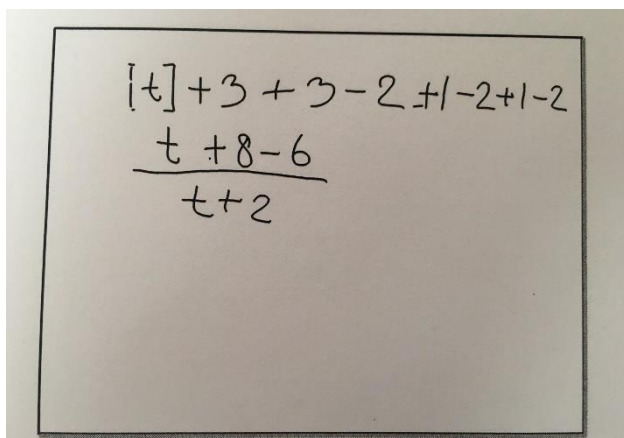 [t] + 3 + 3 - 2 + 1 - 2 + 1 - 2
t + 8 - 6
t + 2